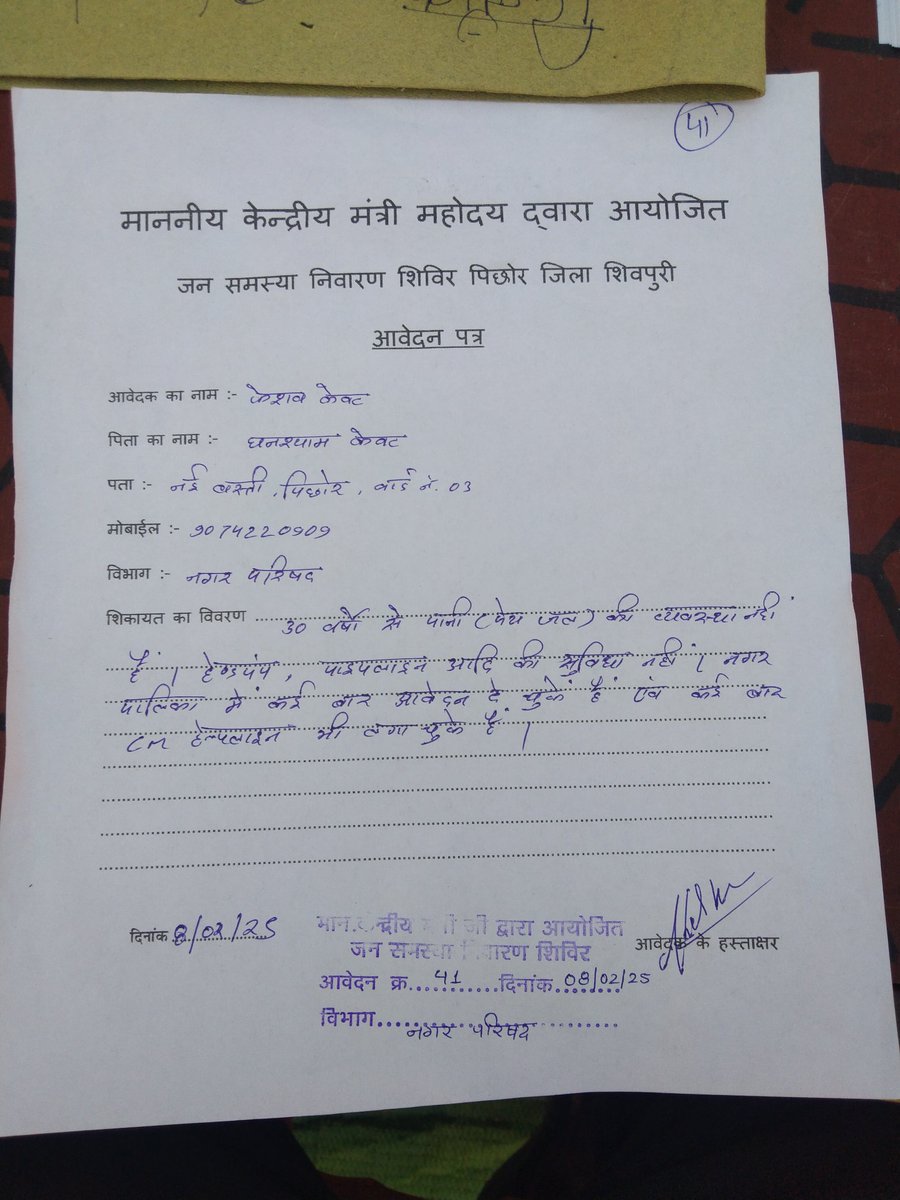 41
माननीय केन्द्रीय मंत्री महोदय द्वारा आयोजित
जन समस्या निवारण शिविर पिछोर जिला शिवपुरी
आवेदन पत्र
आवेदक का नाम :- केशव केवट
पिता का नाम :- घनश्याम केवट
पता :- नई बस्ती, पिछोर, वार्ड नं. 03
मोबाईल :- 9074220909
विभाग :- नगर परिषद
शिकायत का विवरण 30 वर्षो से पानी (पेय जल) की व्यवस्था नहीं
हैं । हेण्डपंप, पाइपलाइन आदि की सुविधा नहीं । नगर
पालिका में कई बार आवेदन दे चुकें हैं एंव कई बार
CM हेल्पलाइन भी लगा चुके हैं ।
दिनांक 8/02/25
आवेदक के हस्ताक्षर
मान.केन्द्रीय मंत्री जी द्वारा आयोजित
जन समस्या निवारण शिविर
आवेदन क्र......41.........दिनांक..08/02/25
विभाग...नगर परिषद